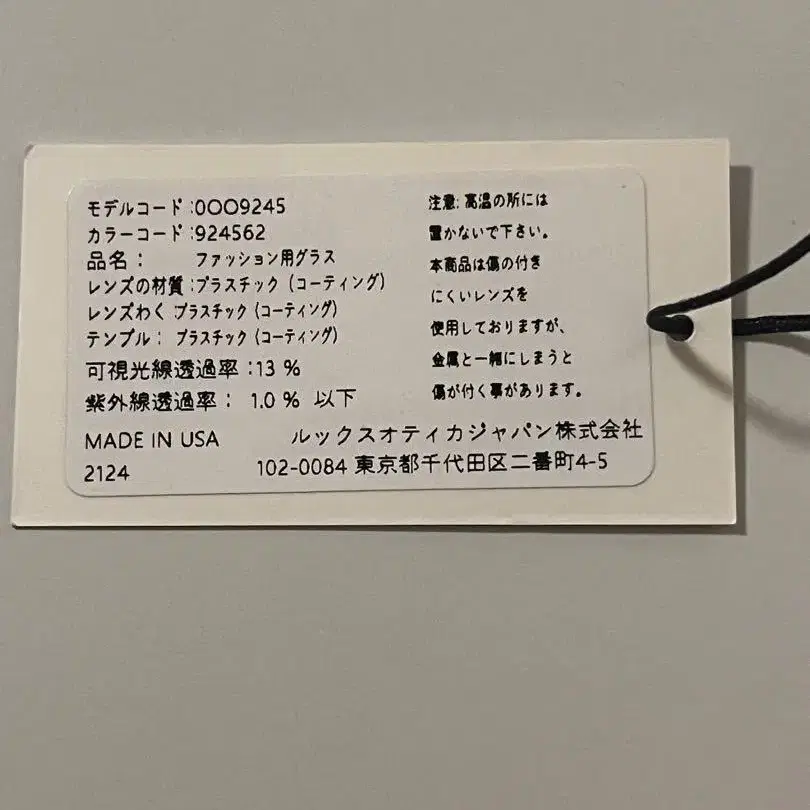 モデルコード:0OO9245
カラーコード:924562
品名: ファッション用グラス
レンズの材質:プラスチック (コーティング)
レンズわく:プラスチック (コーティング)
テンプル: プラスチック (コーティング)
可視光線透過率:13 %
紫外線透過率: 1.0 % 以下
MADE IN USA
2124
注意: 高温の所には
置かないで下さい。
本商品は傷の付き
にくいレンズを
使用しておりますが、
金属と一緒にしまうと
傷が付く事があります。
ルックスオティカジャパン株式会社
102-0084 東京都千代田区二番町4-5